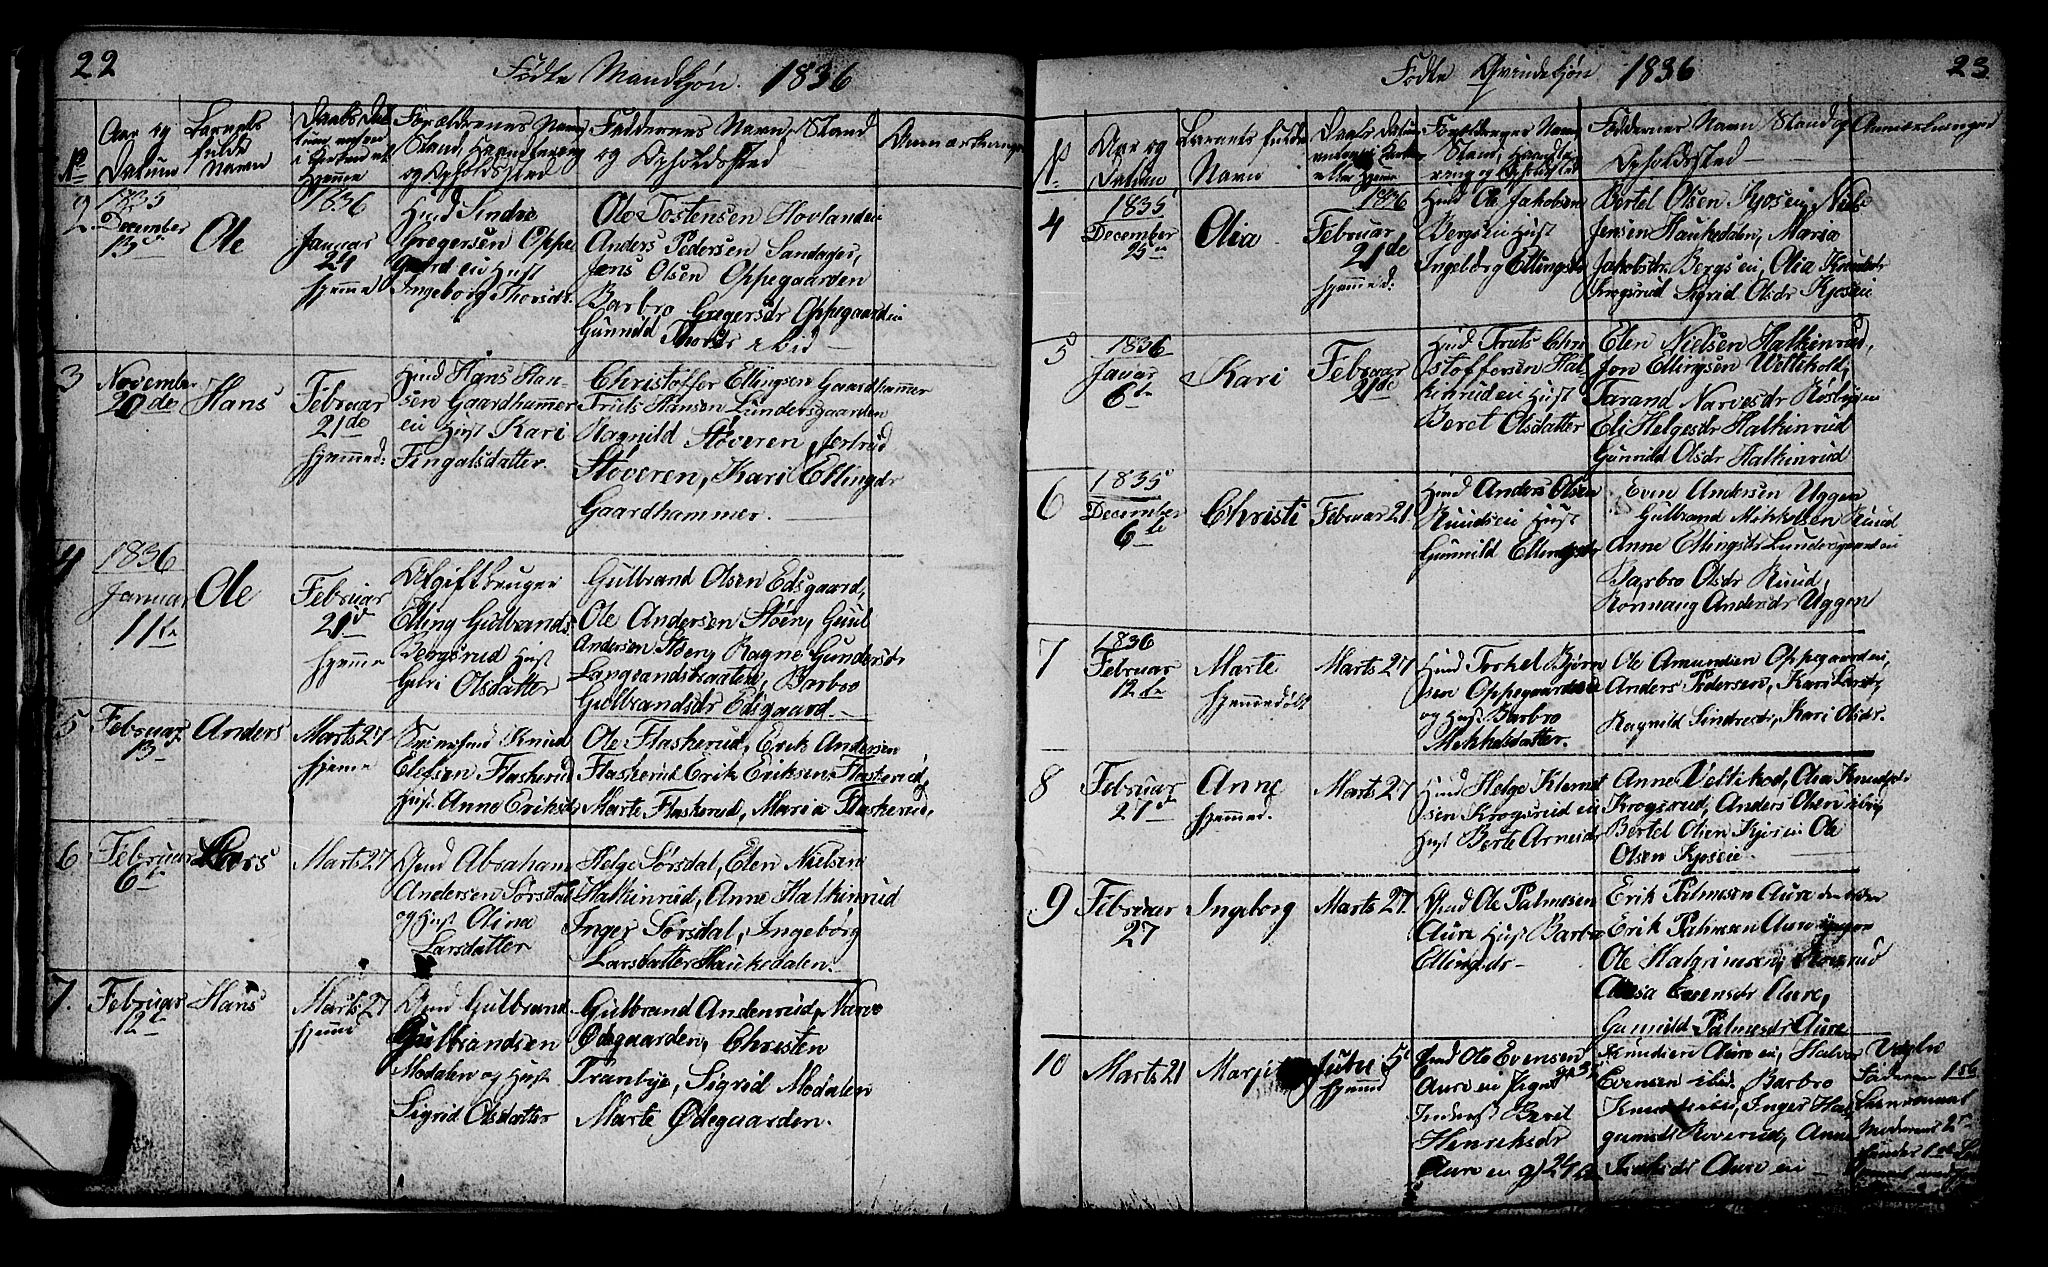 22
Fødte Mandkjøn. 1836
No
Aar og Datum
Barnets fulde Navn
Daabs Datum enten i Kirken el. Hjemme
Forældrenes Navn Stand, Haandtering og Opholdssted
Faddernes Navn, Stand og Opholdssted
Anmærkninger
2
1835
December
13de
Ole
1836
Januar
24
hjemme
Hmd Sindre
Gregersen Oppe
gaard ei Hust
Ingeborg Thorsdr.
Ole Tostensen Hovlandei
Anders Pedersen Sandager,
Jens Olsen Oppegaarden
Barbro Gregersdr Oppegaardei
Gunnild Thorsdr ibid
3
November
20de
Hans
Februar
21de
hjemmed:
Hmd Hans Han-
sen Gaardhammer
ei Hust Kari
Fingalsdatter.
Christoffer Ellingsen Gaardhammer
Truls Hansen Lundersgaarden
Ragnild Støveren, Jertrud
Støveren, Kari Ellingdr
Gaardhammer.
4
1836
Januar
11te
Ole
Februar
21d
hjemme
Afgiftsbruger
Elling Gulbrands
Bergsrud Hust
Guri Olsdatter
Gulbrand Olsen Edsgaard,
Ole Andersen Støen, Guul
Andersen Stberg Ragne Gundersdr
Langsandskraaten, Barbro
Gulbrandsdr Edsgaard.
5
Februar
13
Anders
Marts 27
hjeme
Knud
Elefsen Flaskerud
Hust Anne Eriksdr
Ole Flaskerud, Erik Andersen
Flaskerud Erik Eriksen Flaskerud,
Marte Flaskerud, Maria Flaskerud,
6
Februar
6te
Lars
Marts 27
Gmd Abraham
Andersen Sørsdal
og Hust Olina
Larsdatter
Helge Sørsdal, Elen Nielsen
Halkinrud, Anne Halkinrud
Inger Sørsdal, Ingeborg
Larsdatter Haukedalen.
7.
Februar
12te
Hans
Marts 27
hjemme
Gmd Gulbrand
Gulbrandsen
Modalen og Hust
Sigrid Olsdatter
Gulbrand Andenrud, Narve
Ødegaarden, Christen
Tranbye, Sigrid Modalen
Marte Ødegaarden.
Fødte Qvindekjøn 1836
23
No
Aar og Datum
Barnets fulde Navn
Daabs Datum enten i Kirken eller Hjemme
Forældrenes Navn Stand, Haandtering og Opholdsted
Faddernes Navn Stand og Opholdssted
Anmerkninger
4
1835
December
25de
Olia
1836
Februar
21de
hjemmed:
Hmd Ole Jakobsen
Bergs ei Hust
Ingeborg Ellingsdr
Bertel Olsen Kjos ei, Niels
Jensen Haukedalen, Maria
Jakobsdr. Bergs ei, Olia Knudsdr
Krogsrud Sigrid Olsdr Kjosei
5
1836
Januar
6te
Kari
Februar
21de
Hmd Truls Chri
stoffersen Hal-
kinrud ei Hust
Beret Olsdatter
Elen Nielsen Halkinrud,
Jon Ellingsen Veltehold,
Tarand Narvesdr Røsbygen
Eli Helgesdr Halkinrud
Gunnild Olsdr Halkinrud
6
1835
December
6te
Christi
Februar 21.
Hmd Anders Olsen
Ruudsei Hust
Gunnild Ellingsdr
Even Andersen Uggen
Gulbrand Mikkelsen Ruud
Anne Ellingsdr Lundersgaard ei
Barbro Olsdr Ruud,
Rønnaug Andersdr Uggen
7
1836
Februar
12te
Marte
hjemmedøbt
Marts 27
Hmd Torkel Bjørn
sen Oppegaardsei
og Hust Barbro
Mikkelsdatter.
Ole Amundsen Oppegaard ei,
Anders Pedersen, Kari Larsdr,
Ragnild Sindresdr, Kari Olsdr.
8
Februar
27d
Anne
hjemmed.
Marts 27
Hmd Helge Klemet
sen Krogsrud ei
Hust Berte Arnesdr
Anne Veltihod, Olia Knudsdr
Krogsrud, Anders Olsen ibid,
Bertel Olsen Kjos ei Ole
Olsen Kjosei.
9
Februar
27
Ingeborg
Marts 27.
Gmd Ole Palmesen
Aure Hust Barbro
Ellingsdr
Erik Palmesen Aure den eldre
Erik Palmesen Aure yngre
Ole Halgrimsen, Roverud
Olisia Evensdr Aure,
Gunnild Palmesdr Aure
10
Marts 21
Margit
5te
hjemmed
Ole Evensen
Aure ei
Beret
Henriksdr
Aure ei 24
Knudsen Aure ei, Halvor
Evensen ibid. Barbro
Knudsdr ibid, Inger Hal-
grimsdr Roverud, Anne
Aure ei
Uægte
Faderens 1ste
Leiermaal
Moderens 2det